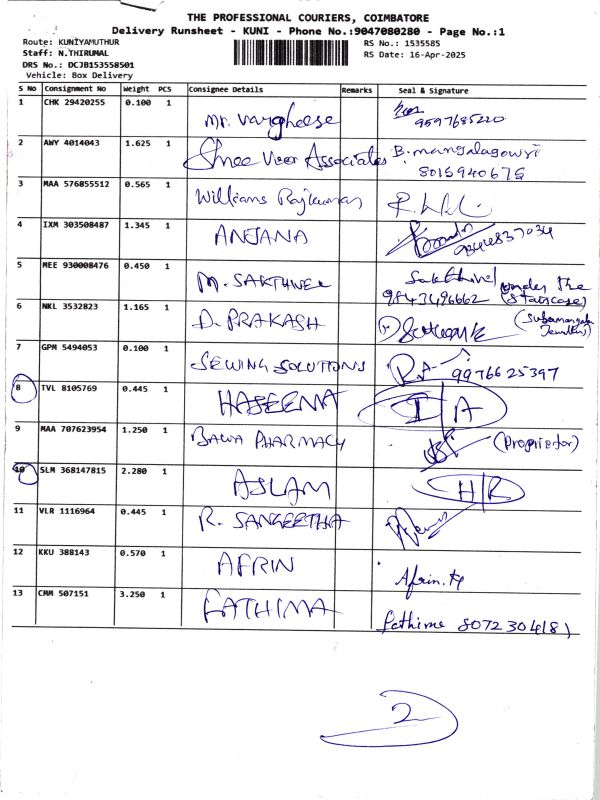 THE PROFESSIONAL COURIERS, COIMBATORE
Delivery Runsheet - KUNI - Phone No.:9047080280 - Page No.:1
Route: KUNIYAMUTHUR
Staff: N.THIRUMAL
DRS No.: DCJB153558501
Vehicle: Box Delivery
RS No.: 1535585
RS Date: 16-Apr-2025
S No Consignment No Weight PCS Consignee Details Remarks Seal & Signature
1 CHK 29420255 0.100 1 Mr. Vargheese
9597685220
2 AWY 4014043 1.625 1 Shree Veer Associates B. mangalagowri
8015940675
3 MAA 576855512 0.565 1 Williams Rajkumar
4 IXM 303508487 1.345 1 ANJANA
9344837034
5 MEE 930008476 0.450 1 M. SAKTHIVEL Sakthivel (under the
9843496662 Staircase)
6 NKL 3532823 1.165 1 D. PRAKASH (Subamangala
Jewellers)
7 GPM 5494053 0.100 1 SEWING SOLUTIONS
9976625397
8 TVL 8105769 0.445 1 HASEENA I/A
9 MAA 707623954 1.250 1 BAWA PHARMACY (Proprietor)
10 SLM 368147815 2.280 1 ASLAM H/R
11 VLR 1116964 0.445 1 R. SANGEETHA
12 KKU 388143 0.570 1 AFRIN Afrin.
13 CMM 507151 3.250 1 FATHIMA
Fathima 8072304181
2